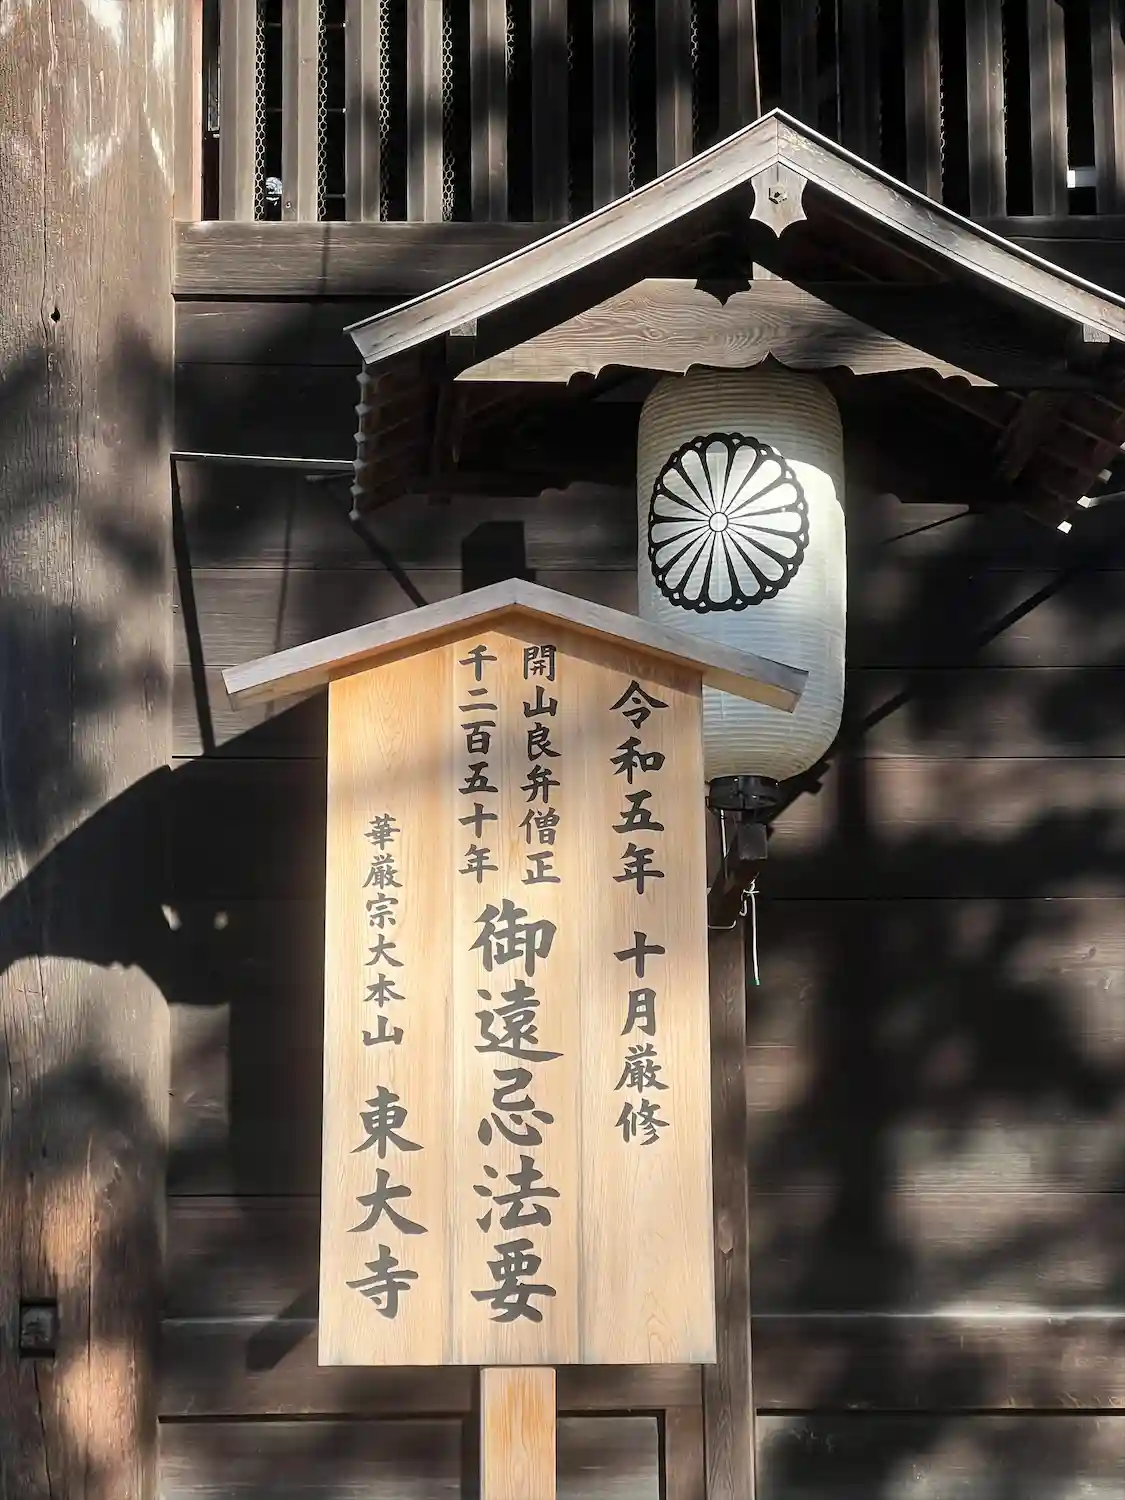 令和五年 十月厳修
開山良弁僧正
千二百五十年
御遠忌法要
華厳宗大本山 東大寺